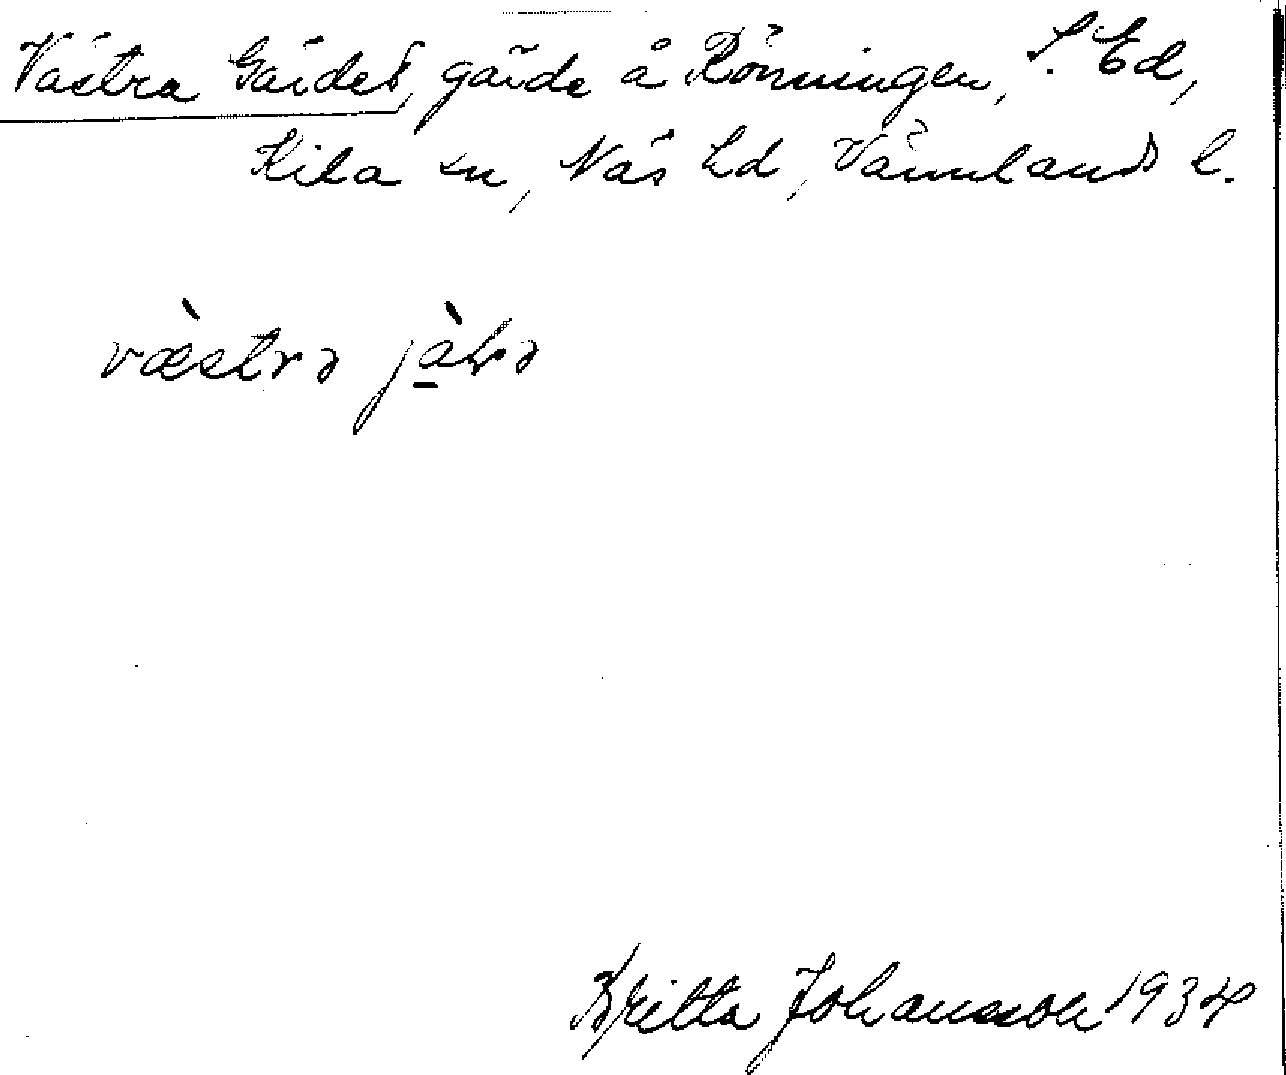 Västra Gärdet, gärde å Rönningen, S. Ed,
Kila sn, Näs hd, Värmlands l.
væ̀strə
Britta Johansson 1934